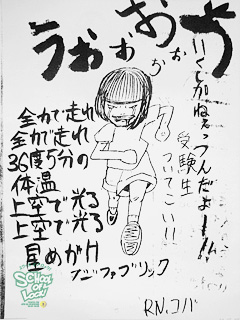 うおおおおおお
いくしかねぇっつんだよー!!
受験生
ついてこい!!
全力で走れ
全力で走れ
36度5分の
体温
上空で光る
上空で光る
星めがけ
フジファブリック
RN.コバ
SCHOOL OF LOCK!